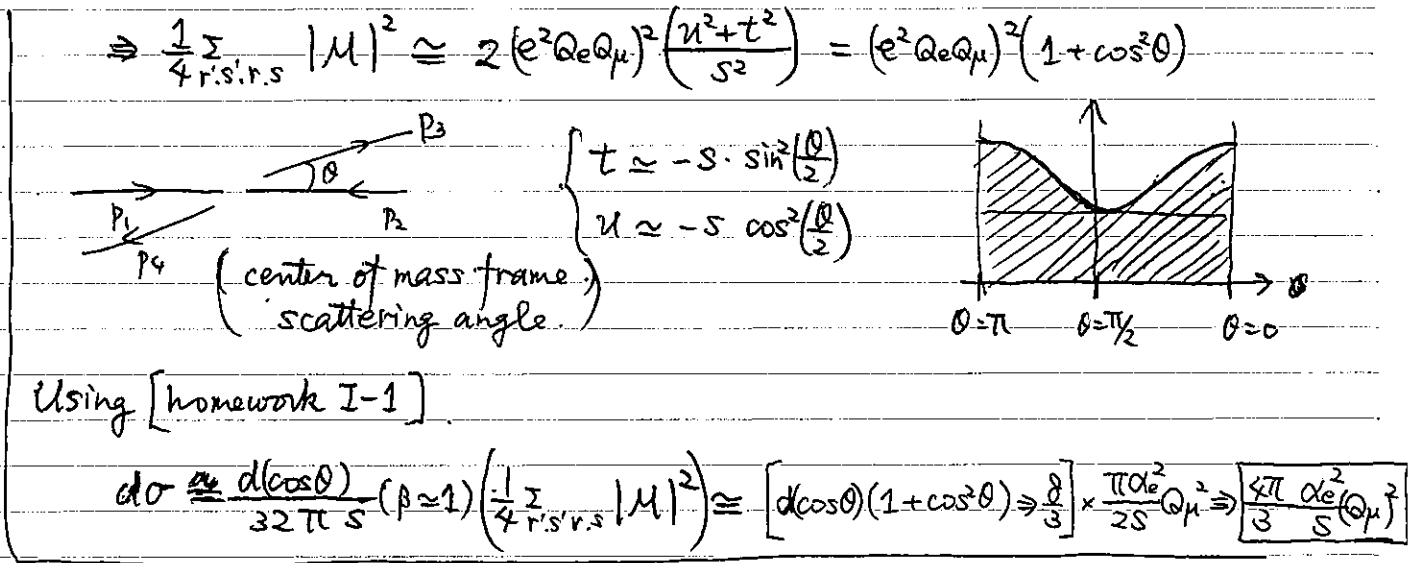 ⇒ 1/4 Σ_{r'.s'.r.s} |M|² ≃ 2(e²QeQμ)² ((u²+t²)/s²) = (e²QeQμ)²(1+cos²θ)
P₃
θ
P₁
P₂
P₄
{ t ≃ -s · sin²(θ/2)
u ≃ -s cos²(θ/2)
(center of mass frame.
scattering angle.)
θ=π θ=π/2 θ=0
Using [homework I-1].
dσ ≃ d(cosθ)/(32π s) (β≃1) (1/4 Σ_{r's'r.s} |M|²) ≃ [d(cosθ)(1+cos²θ) ⇒ 8/3] × (παe²/2s) Qμ² ⇒ 4π/3 αe²/s (Qμ)²